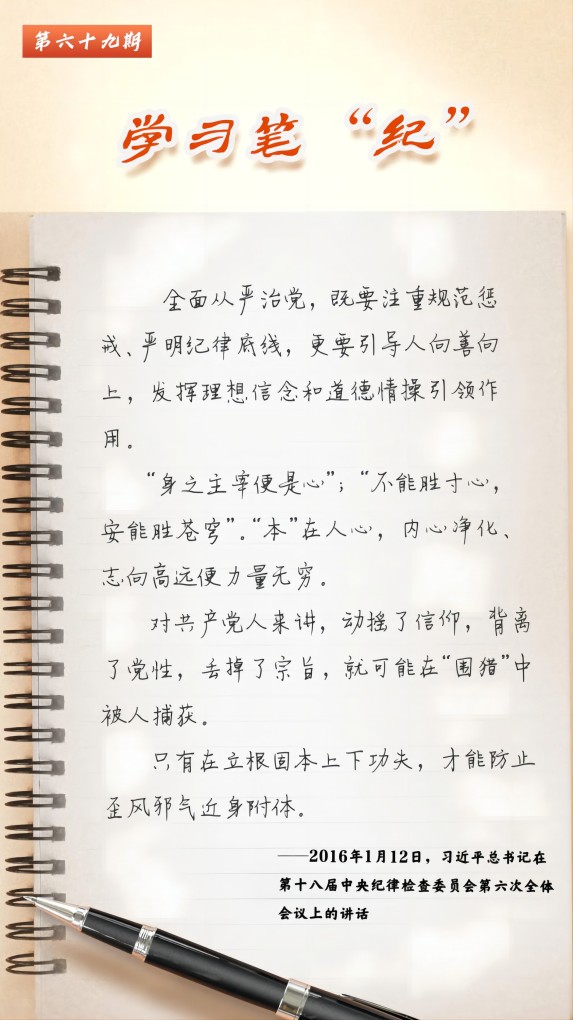 第六十九期
学习笔“纪”
全面从严治党，既要注重规范惩
戒、严明纪律底线，更要引导人向善向
上，发挥理想信念和道德情操引领作
用。
“身之主宰便是心”；“不能胜寸心，
安能胜苍穹”。“本”在人心，内心净化、
志向高远便力量无穷。
对共产党人来讲，动摇了信仰，背离
了党性，丢掉了宗旨，就可能在“围猎”中
被人捕获。
只有在立根固本上下功夫，才能防止
歪风邪气近身附体。
——2016年1月12日，习近平总书记在
第十八届中央纪律检查委员会第六次全体
会议上的讲话